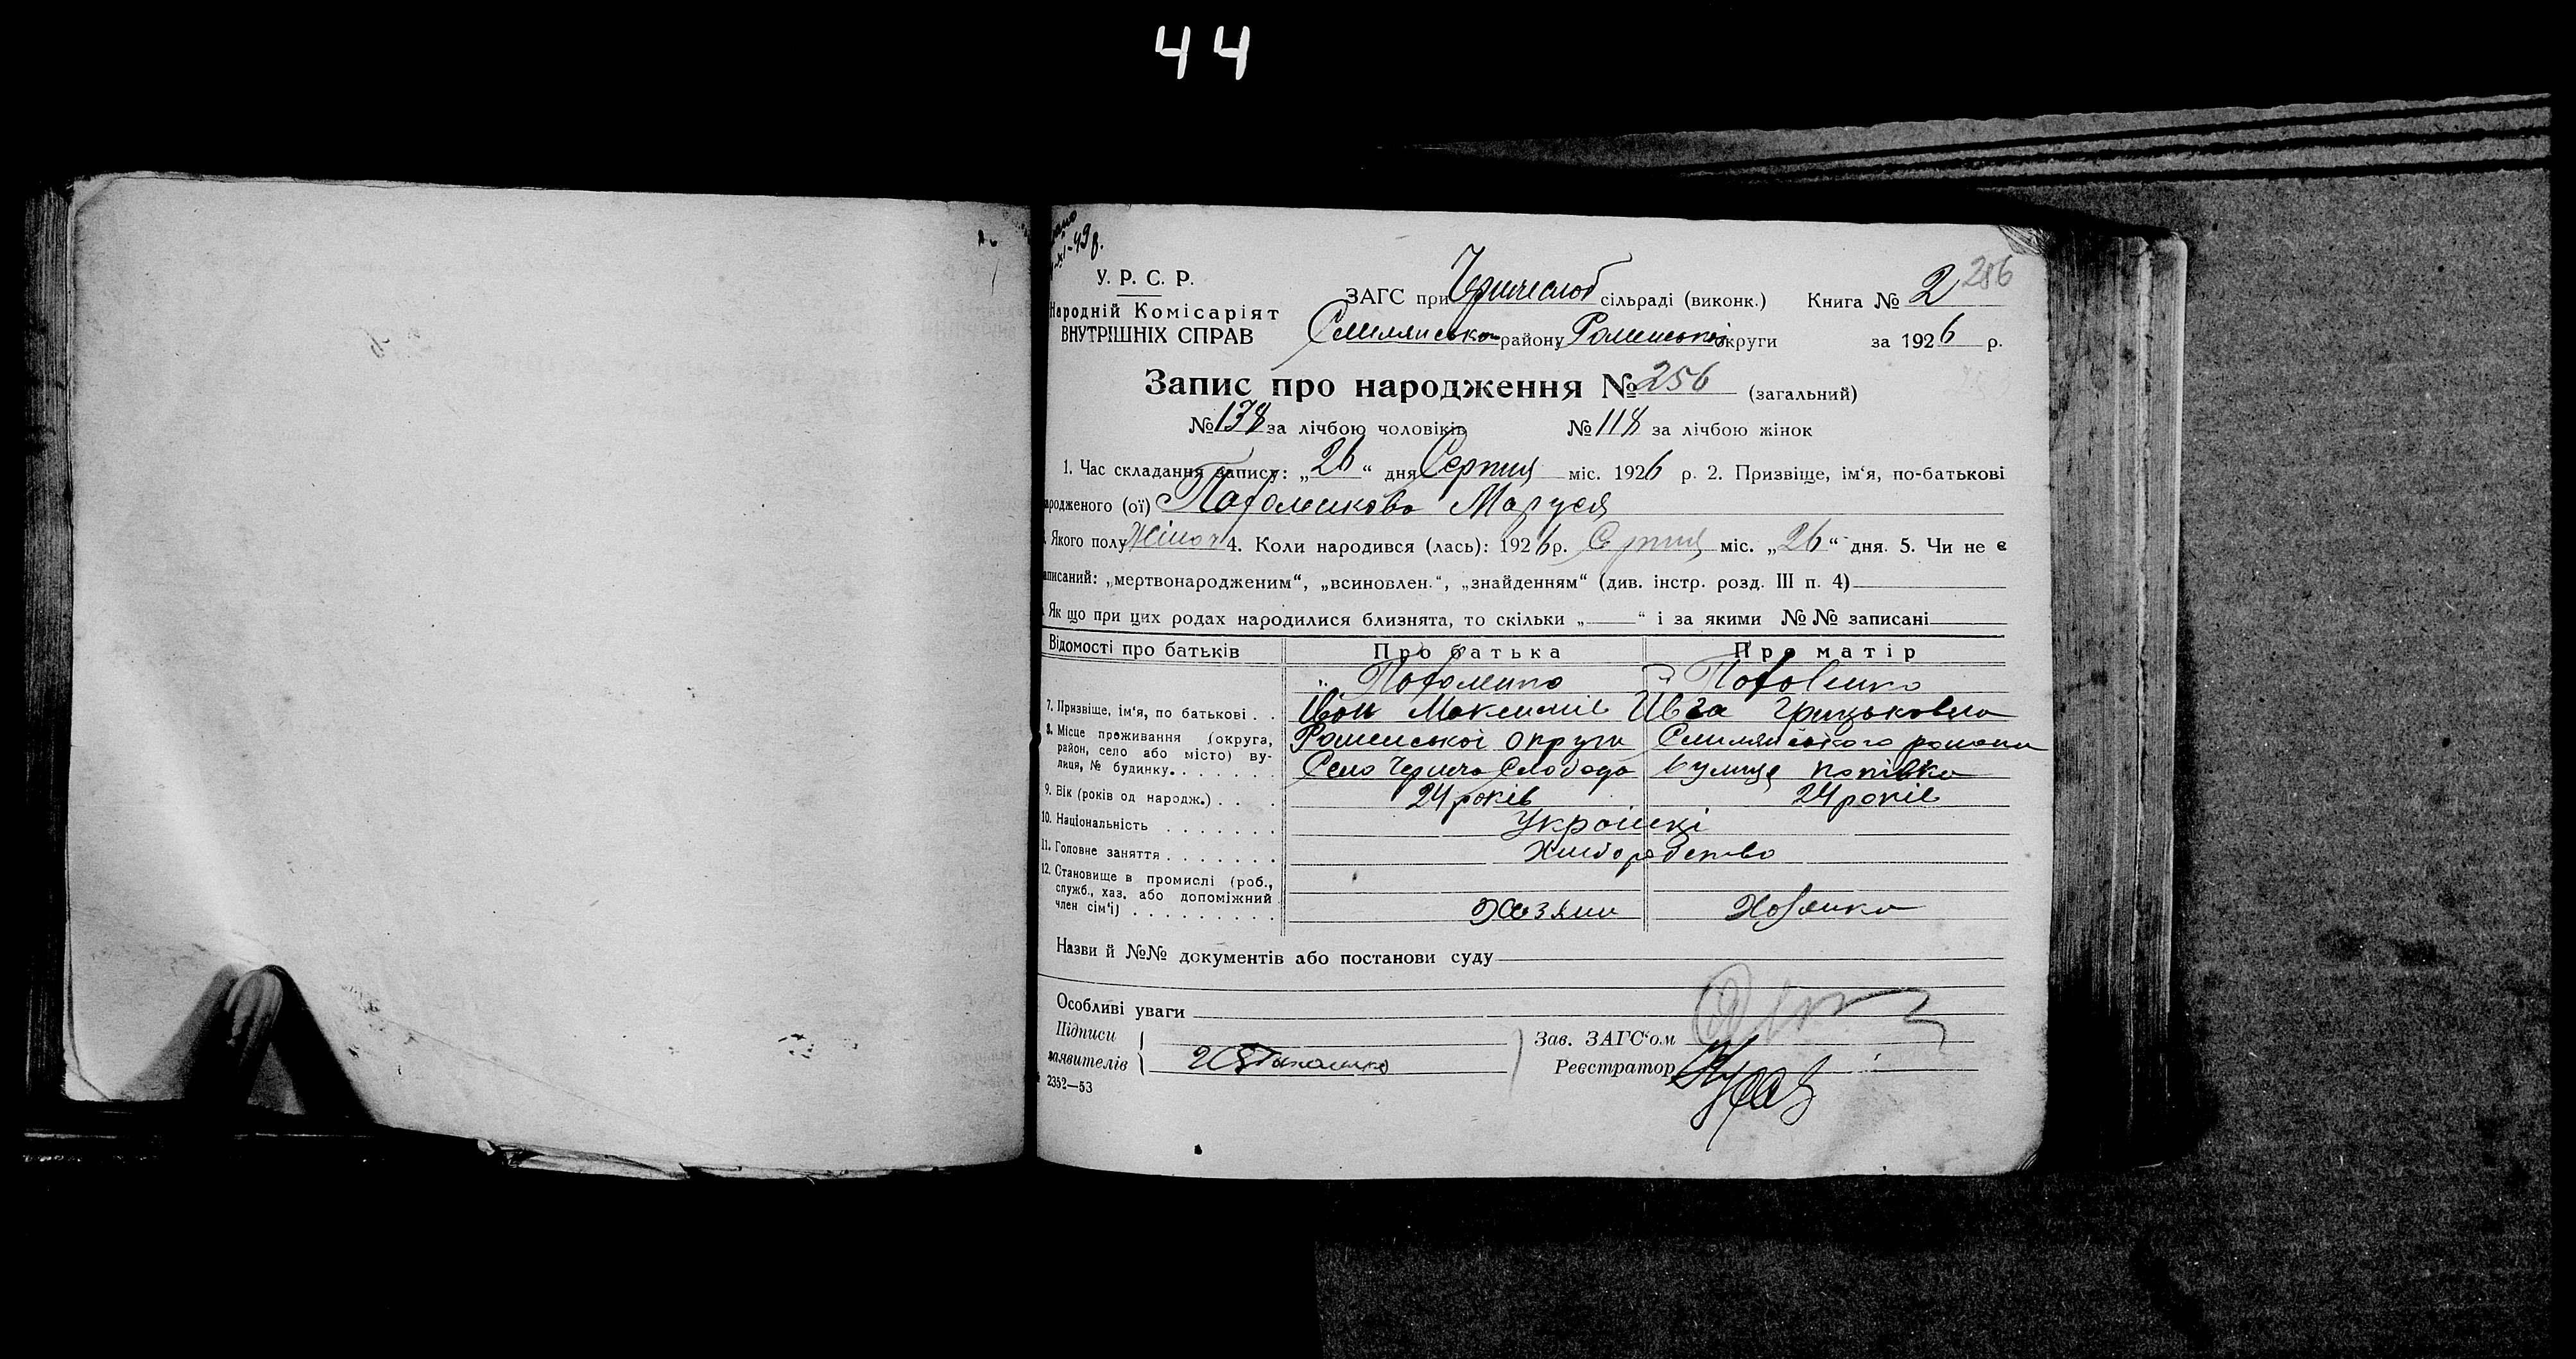 44
У. Р. С. Р.
Народній Комісаріят
ВНУТРІШНІХ СПРАВ
ЗАГС при Чернеслоб сільраді (виконк.) Книга № 2 286
Смілянсько району Роменської округи за 1926 р.
Запис про народження № 256 (загальний)
№ 138 за лічбою чоловіків № 118 за лічбою жінок
1. Час складання запису: „26“ дня Серпня міс. 1926 р. 2. Призвіще, ім‘я, по-батькові
народженого (ої) Маруся
Якого полу Жіноч 4. Коли народився (лась): 1926 р. Серпня міс. „26“ дня. 5. Чи не є
записаний: „мертвонародженим“, „всиновлен.“, „знайденням“ (див. інстр. розд. III п. 4)
Як що при цих родах народилися близнята, то скільки „ “ і за якими №№ записані
Відомості про батьків Про батька Про матір
7. Призвіще, ім‘я, по батькові . . Іван Максимів Ивга Грицьковна
8. Місце проживання (округа, Роменської округи Смилянського района
район, село або місто) ву- Село Чернеча Слобода вулиця попівка
лиця, № будинку. . . . . . .
9. Вік (років од народж.) . . . 24 років 24 років
10. Національність . . . . . . . Українці
11. Головне заняття . . . . . . . Хліборобство
12. Становище в промислі (роб.,
служб., хаз. або допоміжний
член сім‘ї) . . . . . . . . . Хазяин Хозяика
Назви й №№ документів або постанови суду
Особливі уваги
Підписи
заявителів
Зав. ЗАГС‘ом
Реєстратор
2352—53